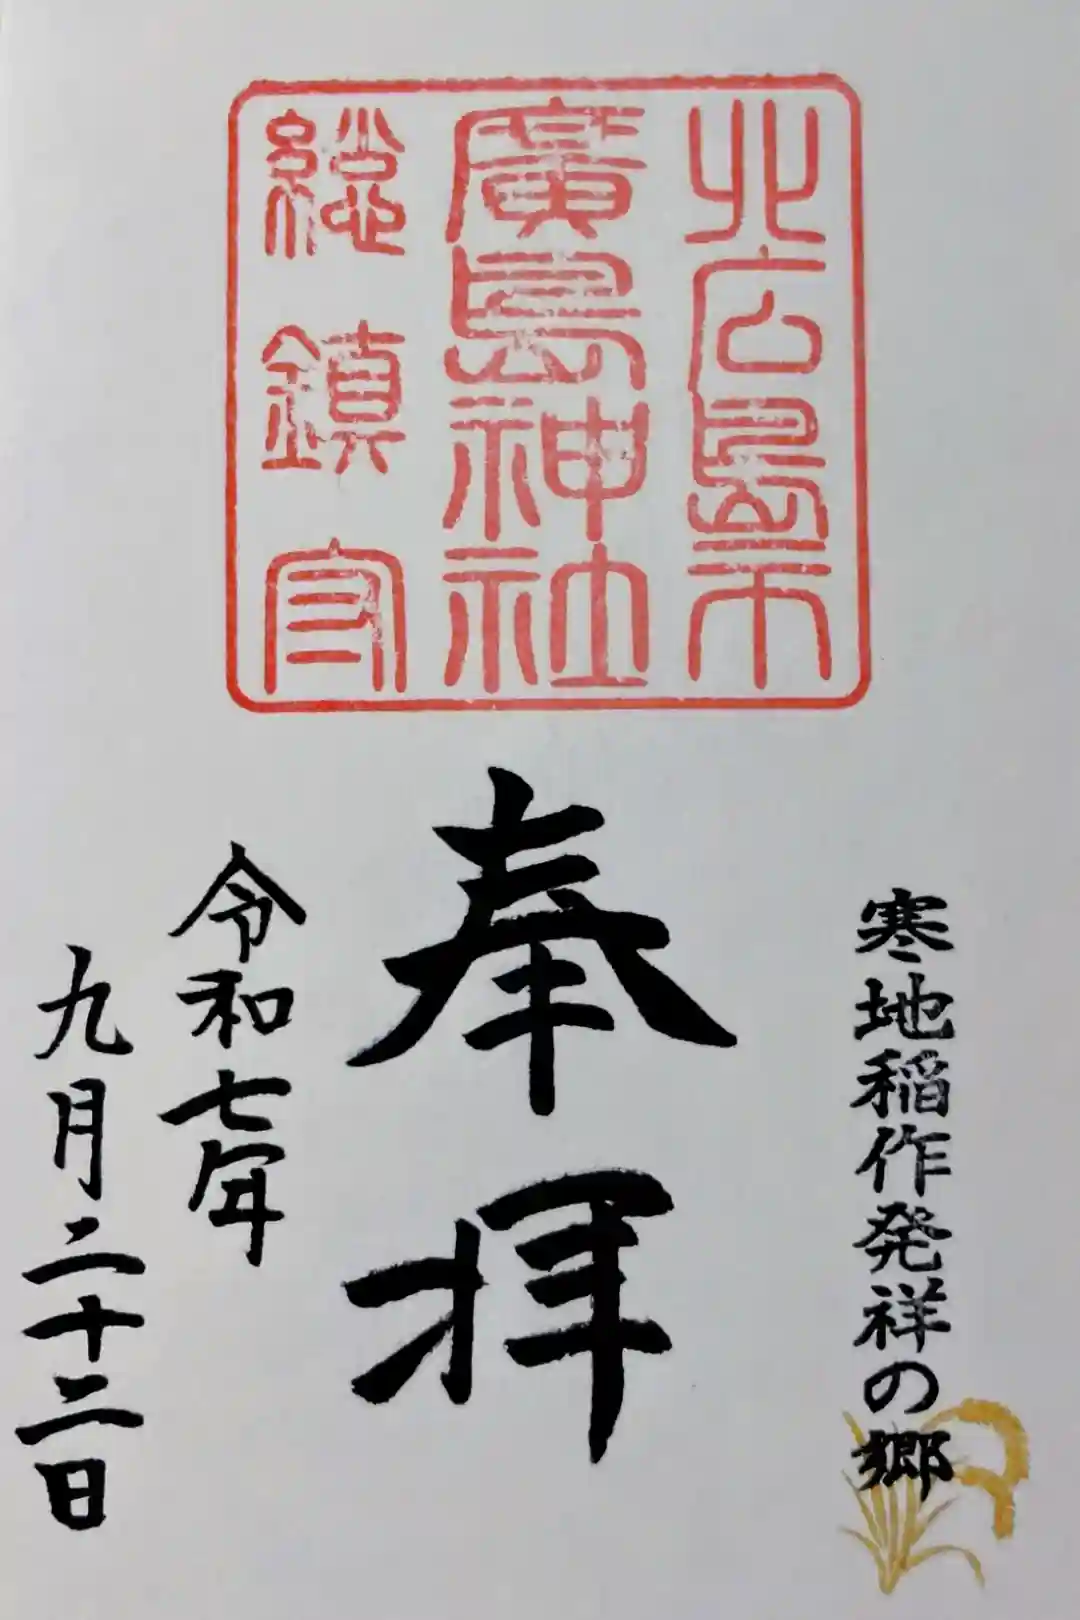 北広島市
廣島神社
総鎮守
寒地稲作発祥の郷
奉拝
令和七年
九月二十二日